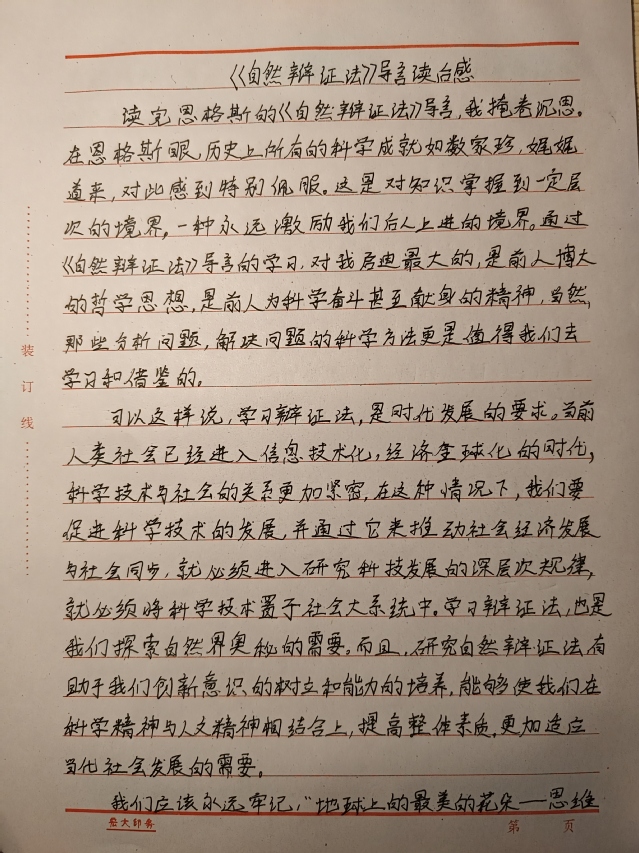 《自然辩证法》导言读后感
读完恩格斯的《自然辩证法》导言,我掩卷沉思。
在恩格斯眼,历史上所有的科学成就如数家珍,娓娓
道来,对此感到特别佩服。这是对知识掌握到一定层
次的境界,一种永远激励我们后人上进的境界。通过
《自然辩证法》导言的学习,对我启迪最大的,是前人博大
的哲学思想,是前人为科学奋斗甚至献身的精神,当然,
那些分析问题,解决问题的科学方法更是值得我们去
学习和借鉴的。
可以这样说,学习辩证法,是时代发展的要求。当前
人类社会已经进入信息技术化,经济全球化的时代,
科学技术与社会的关系更加紧密,在这种情况下,我们要
促进科学技术的发展,并通过它来推动社会经济发展
与社会同步,就必须进入研究科技发展的深层次规律,
就必须将科学技术置于社会大系统中。学习辩证法,也是
我们探索自然界奥秘的需要。而且,研究自然辩证法有
助于我们创新意识的树立和能力的培养,能够使我们在
科学精神与人文精神相结合上,提高整体素质,更加适应
当代社会发展的需要。
我们应该永远牢记,“地球上的最美的花朵——思维
装订线
登大印务
第 页